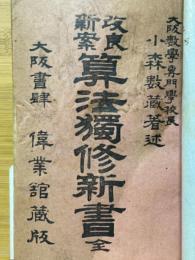 大阪數學專門學校長
小森数藏著述
改良
新案
算法獨修新書 全
大阪書肆 偉業館藏版